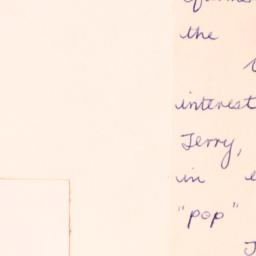 the
interest
Jerry,
in
"pop"